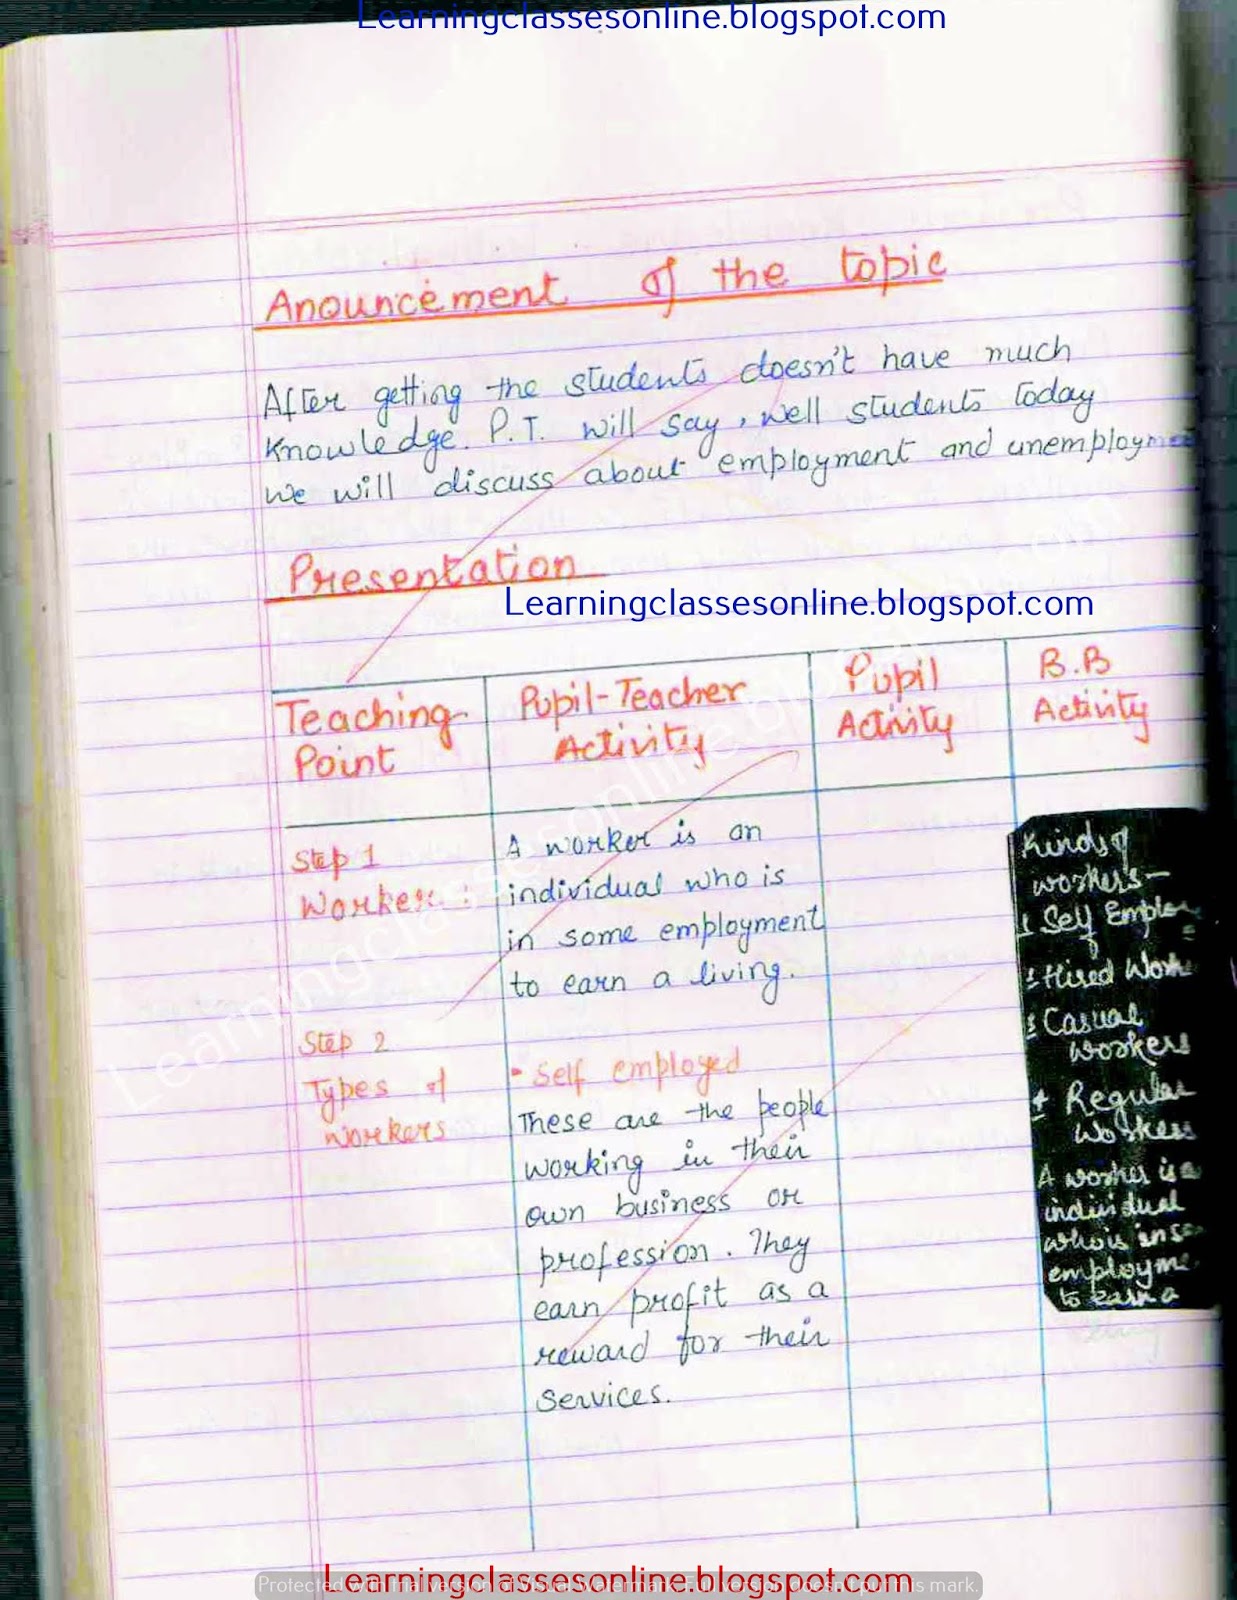 Learningclassesonline.blogspot.com
Anouncement of the topic
After getting the students doesn't have much
knowledge. P.T. will say, well students today
we will discuss about employment and unemployme
Presentation
Learningclassesonline.blogspot.com
Teaching Point
Pupil-Teacher Activity
Pupil Activity
B.B Activity
Step 1
Worker :
A worker is an
individual who is
in some employment
to earn a living.
Step 2
Types of
workers
• Self employed
These are the people
working in their
own business or
profession. They
earn profit as a
reward for their
services.
Kinds of
workers –
1 Self Employ
2 Hired Worke
3 Casual
workers
4 Regular
workers
A worker is a
individual
who is in so
employme
to earn a
living
Learningclassesonline.blogspot.com
Protected with trial version of Visual Watermark. Full version doesn't put this mark.